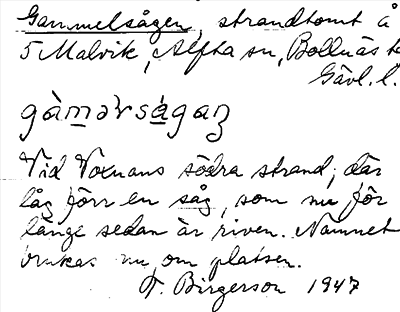 Gammelsågen, strandtomt å
5 Malvik, Alfta sn, Bollnäs
Gävl. l.
gàmərsågaꞃ
Vid Voxnans södra strand, där
låg förr en såg, som nu för
länge sedan är riven. Namnet
brukas nu om platsen.
F. Birgerson 1947